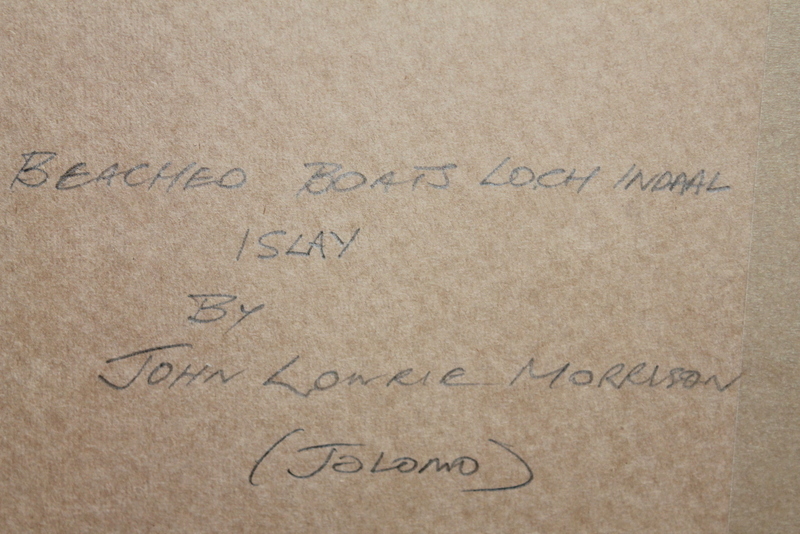 BEACHED BOATS LOCH INDAAL
ISLAY
BY
JOHN LOWRIE MORRISON
(JOLOMO)